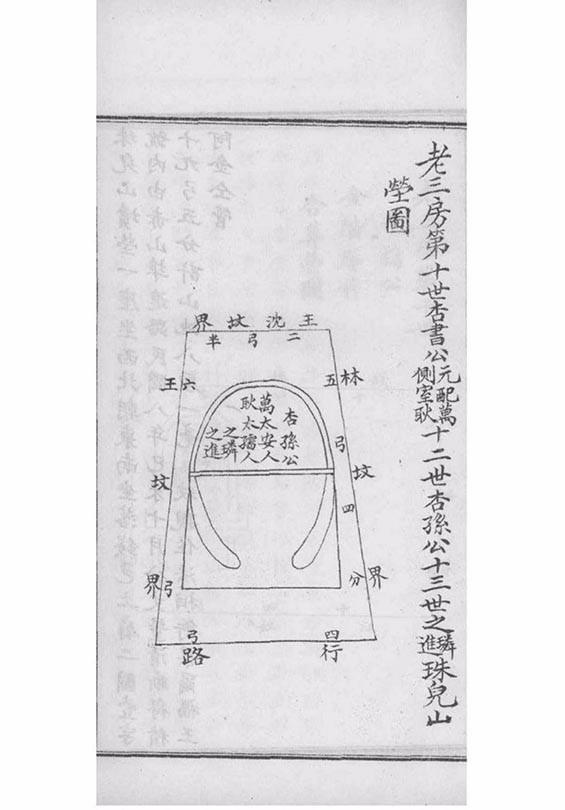 老三房第十世杏書公元配萬側室耿十二世杏孫公十三世之璘進珠兒山
塋圖
王沈坟界
二弓半
林坟界
五弓四分
杏孫公
萬太安人
耿太孺人
之璘
之進
六弓
王坟界
四弓
行路